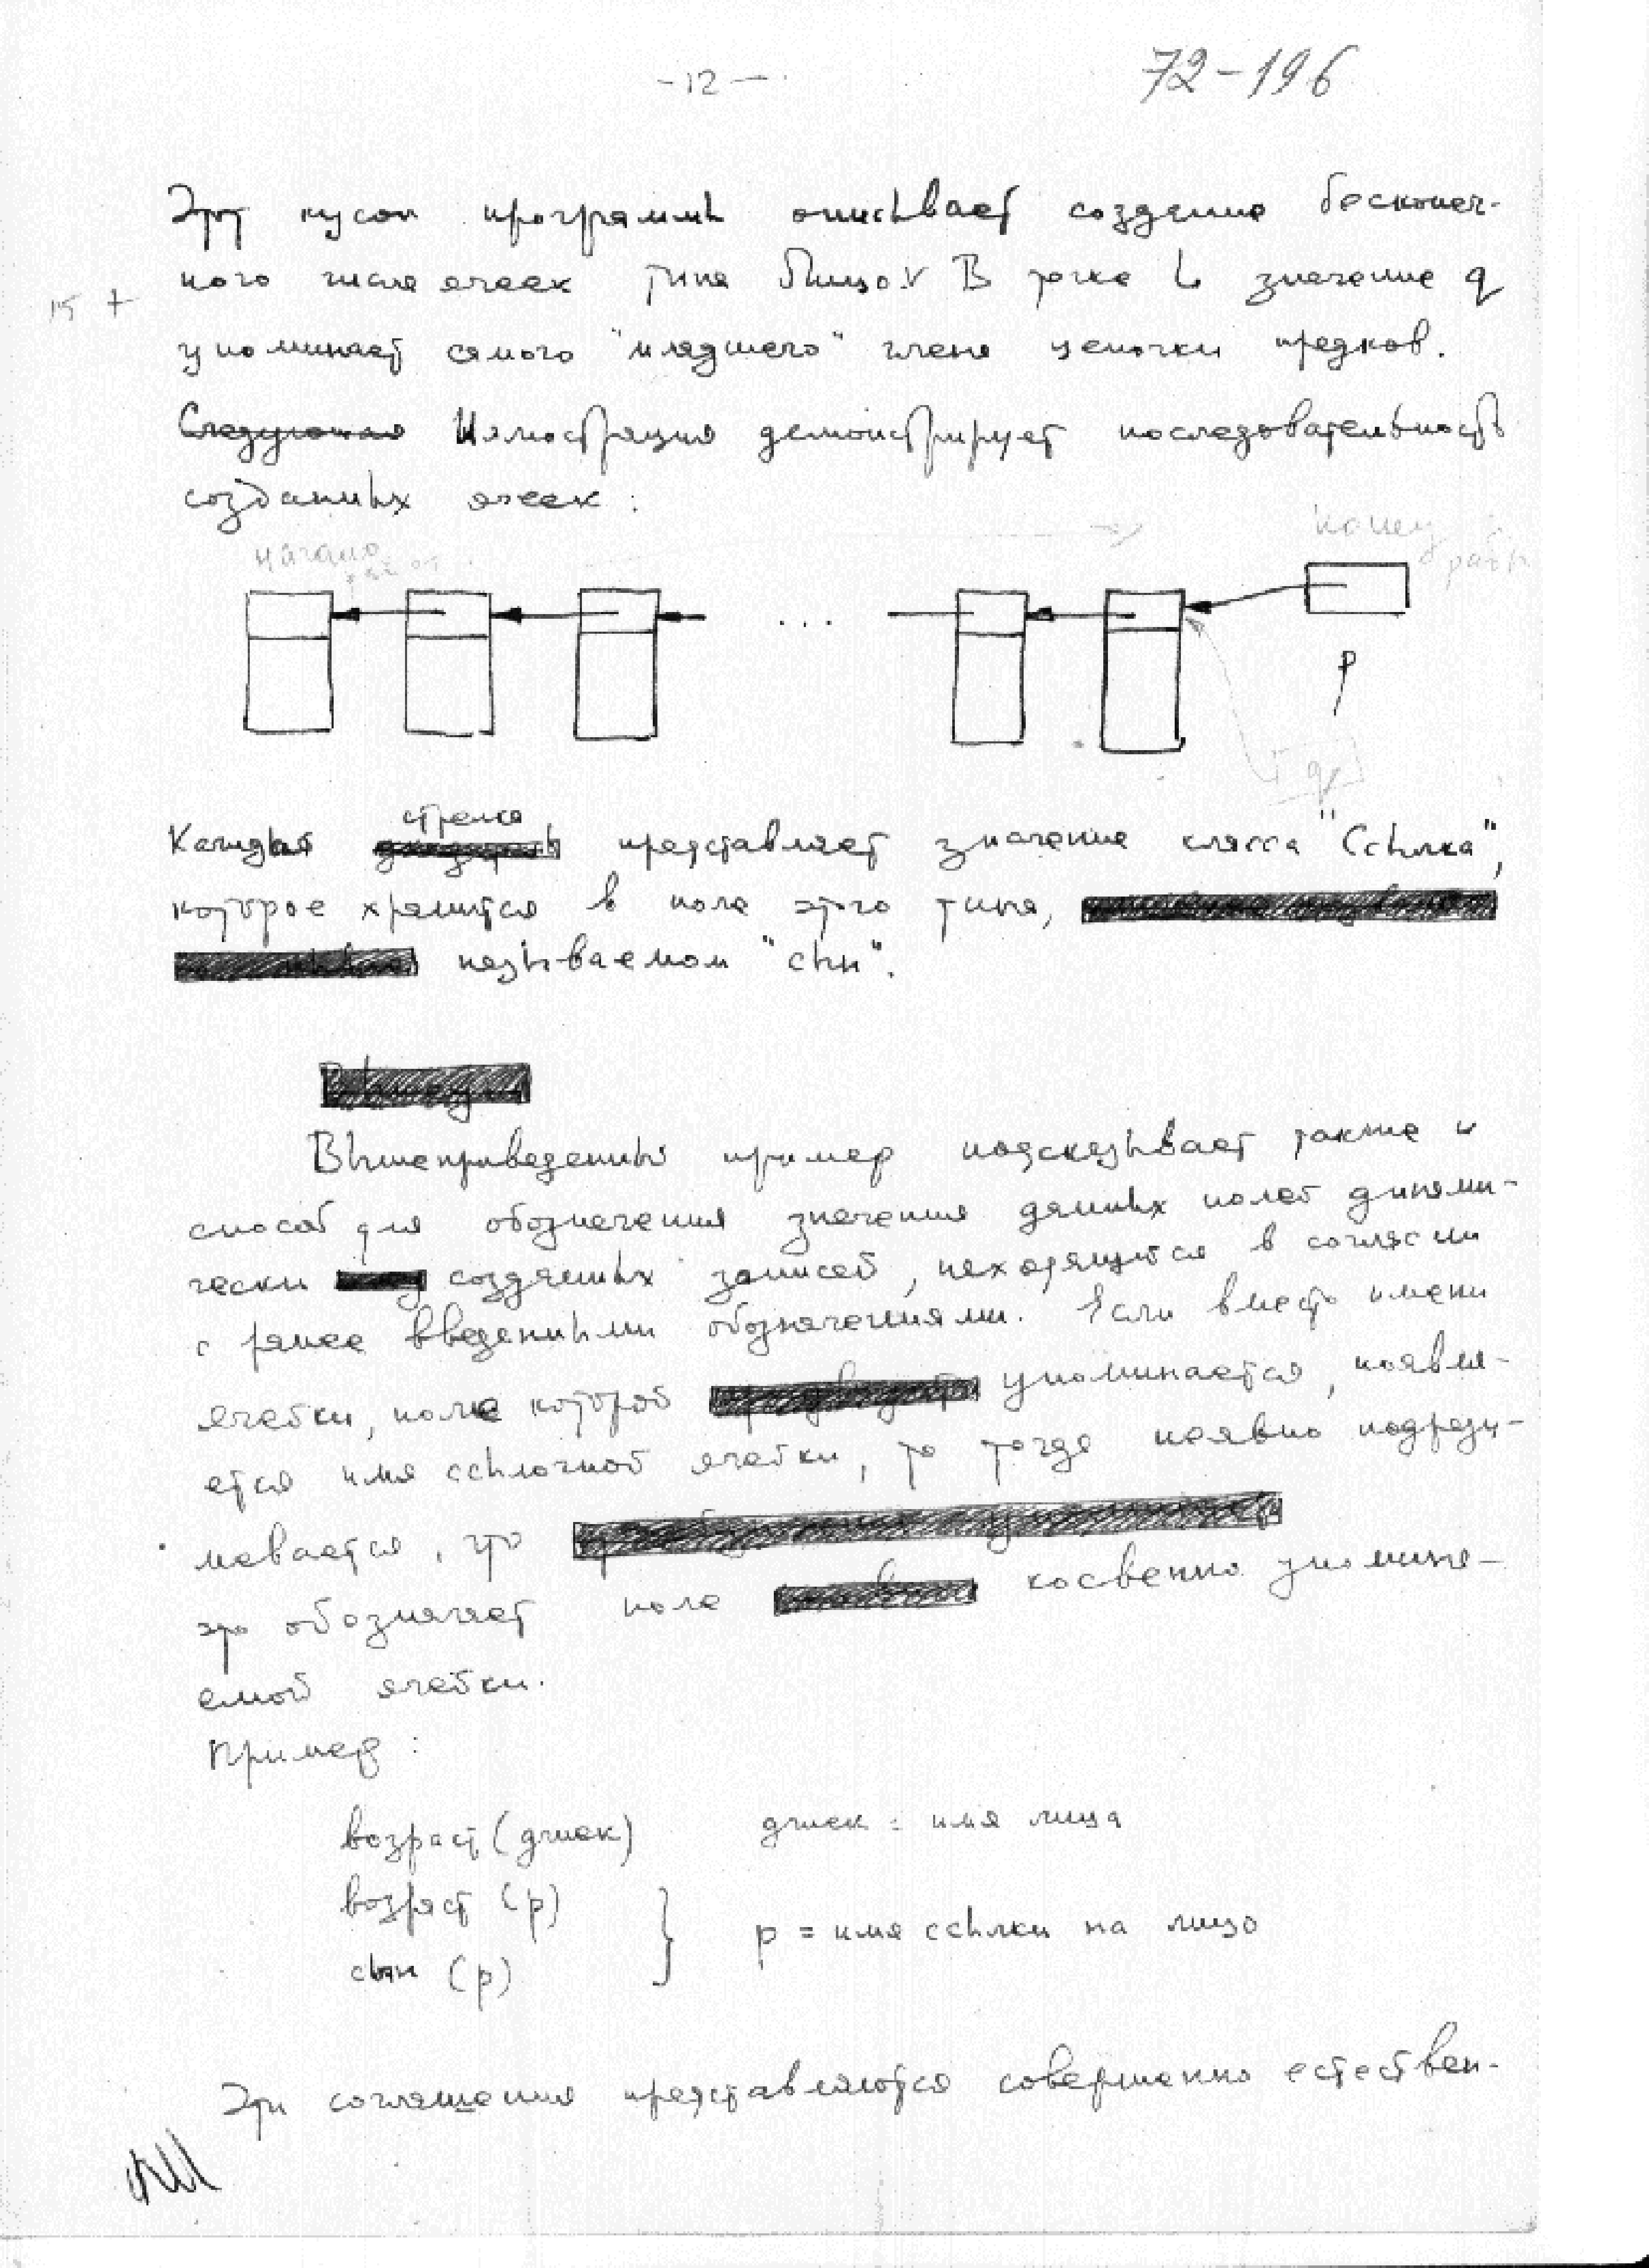 -12-
72-196
Этот кусок программы описывает создание бесконеч-
ного числа ячеек типа Лицо. В точке L значение q
15 +
упоминает самого "младшего" члена цепочки предков.
Следующая Иллюстрация демонстрирует последовательность
созданных ячеек:
начало
конец
...
p
q
стрелка
Каждая представляет значение класса "Ссылка",
которое хранится в поле этого типа,
называемом "сын".
Вышеприведенный пример подсказывает также и
способ для обозначения значения данных полей динами-
чески созданных записей, находящийся в согласии
с ранее введенными обозначениями. Если вместо имени
ячейки, поле которой упоминается, появля-
ется имя ссылочной ячейки, то тогда неявно подразу-
мевается, что
это обозначает поле косвенно упомина-
емой ячейки.
Пример:
возраст (джек) джек = имя лица
возраст (p)
p = имя ссылки на лицо
сын (p)
Эти соглашения представляются совершенно естествен-